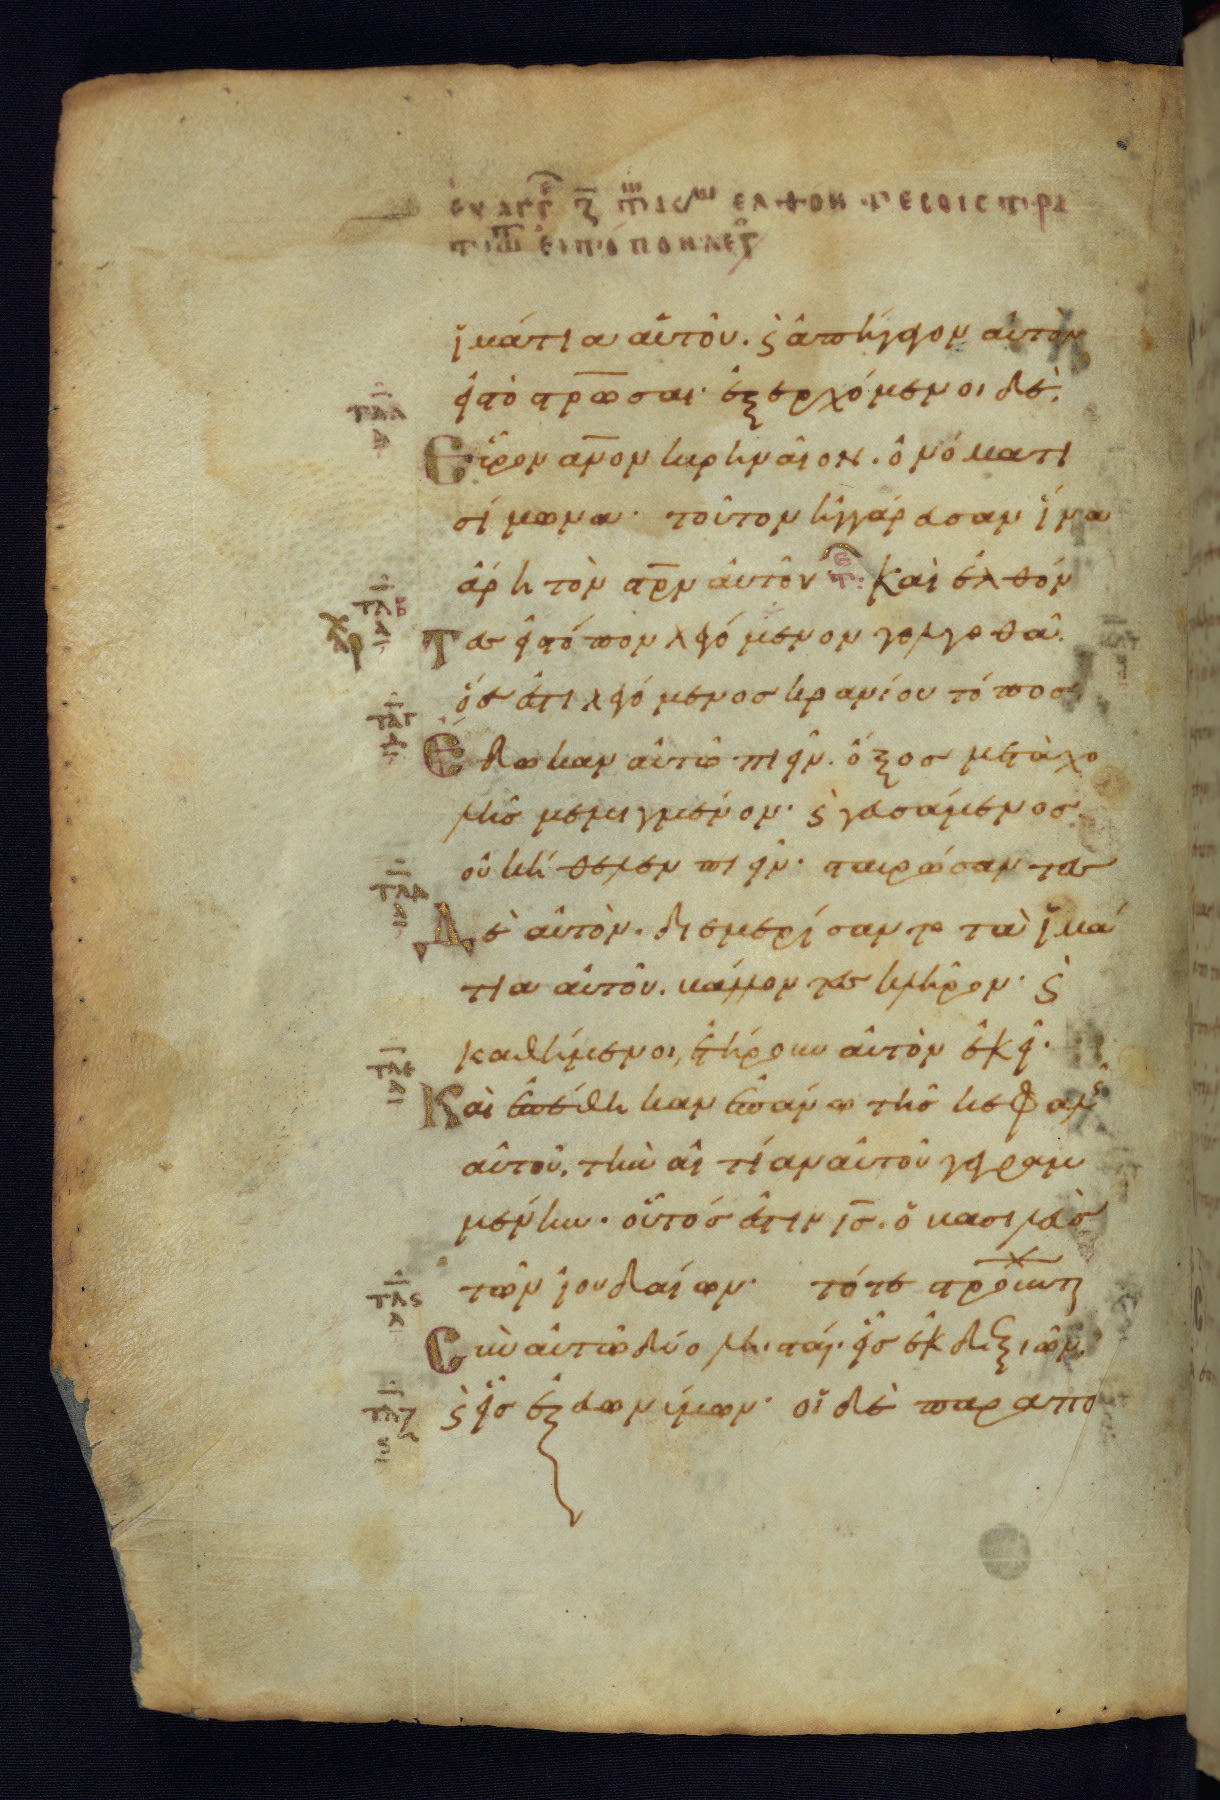 ἱμάτια αὐτοῦ. ϛ ἀπήγαγον αὐτὸν
εἰς τὸ στρῶσαι· ἐξερχόμενοι δὲ,
Εὗρον ἄνον κυρηναῖον. ὀνόματι
σίμωνα· τοῦτον ἠγγάρευσαν ἵνα
ἄρη τὸν στρν αὐτοῦ· Καὶ ἐλθόν
Τες εἰς τόπον λεγόμενον γολγοθᾶ.
ὅς ἐστι λεγόμενος κρανίου τόπος
Ἔδωκαν αὐτῶ πιεῖν. ὄξος μετὰ χο
λῆς μεμιγμένον· ϛ γευσάμενος
οὐκ ἤθελεν πιεῖν· σταυρώσαντες
Δὲ αὐτὸν. διεμερίσαντο τὰ ἱμά
τια αὐτοῦ. βάλλοντες κλῆρον· ϛ
καθήμενοι, ἐτήρουν αὐτὸν ἐκεῖ·
Καὶ ἐπέθηκαν ἐπάνω τῆς κεφαλῆς
αὐτοῦ, τὴν αἰτίαν αὐτοῦ γεγραμ
μένην· οὗτός ἐστιν ις. ὁ βασιλεὺς
τῶν ἰουδαίων· τότε στροῦντ
Σὺν αὐτῶ δύο λησταί· εἷς ἐκ δεξιῶν,
ϛ εἷς ἐξ εὐωνύμων· οἱ δὲ παραπο